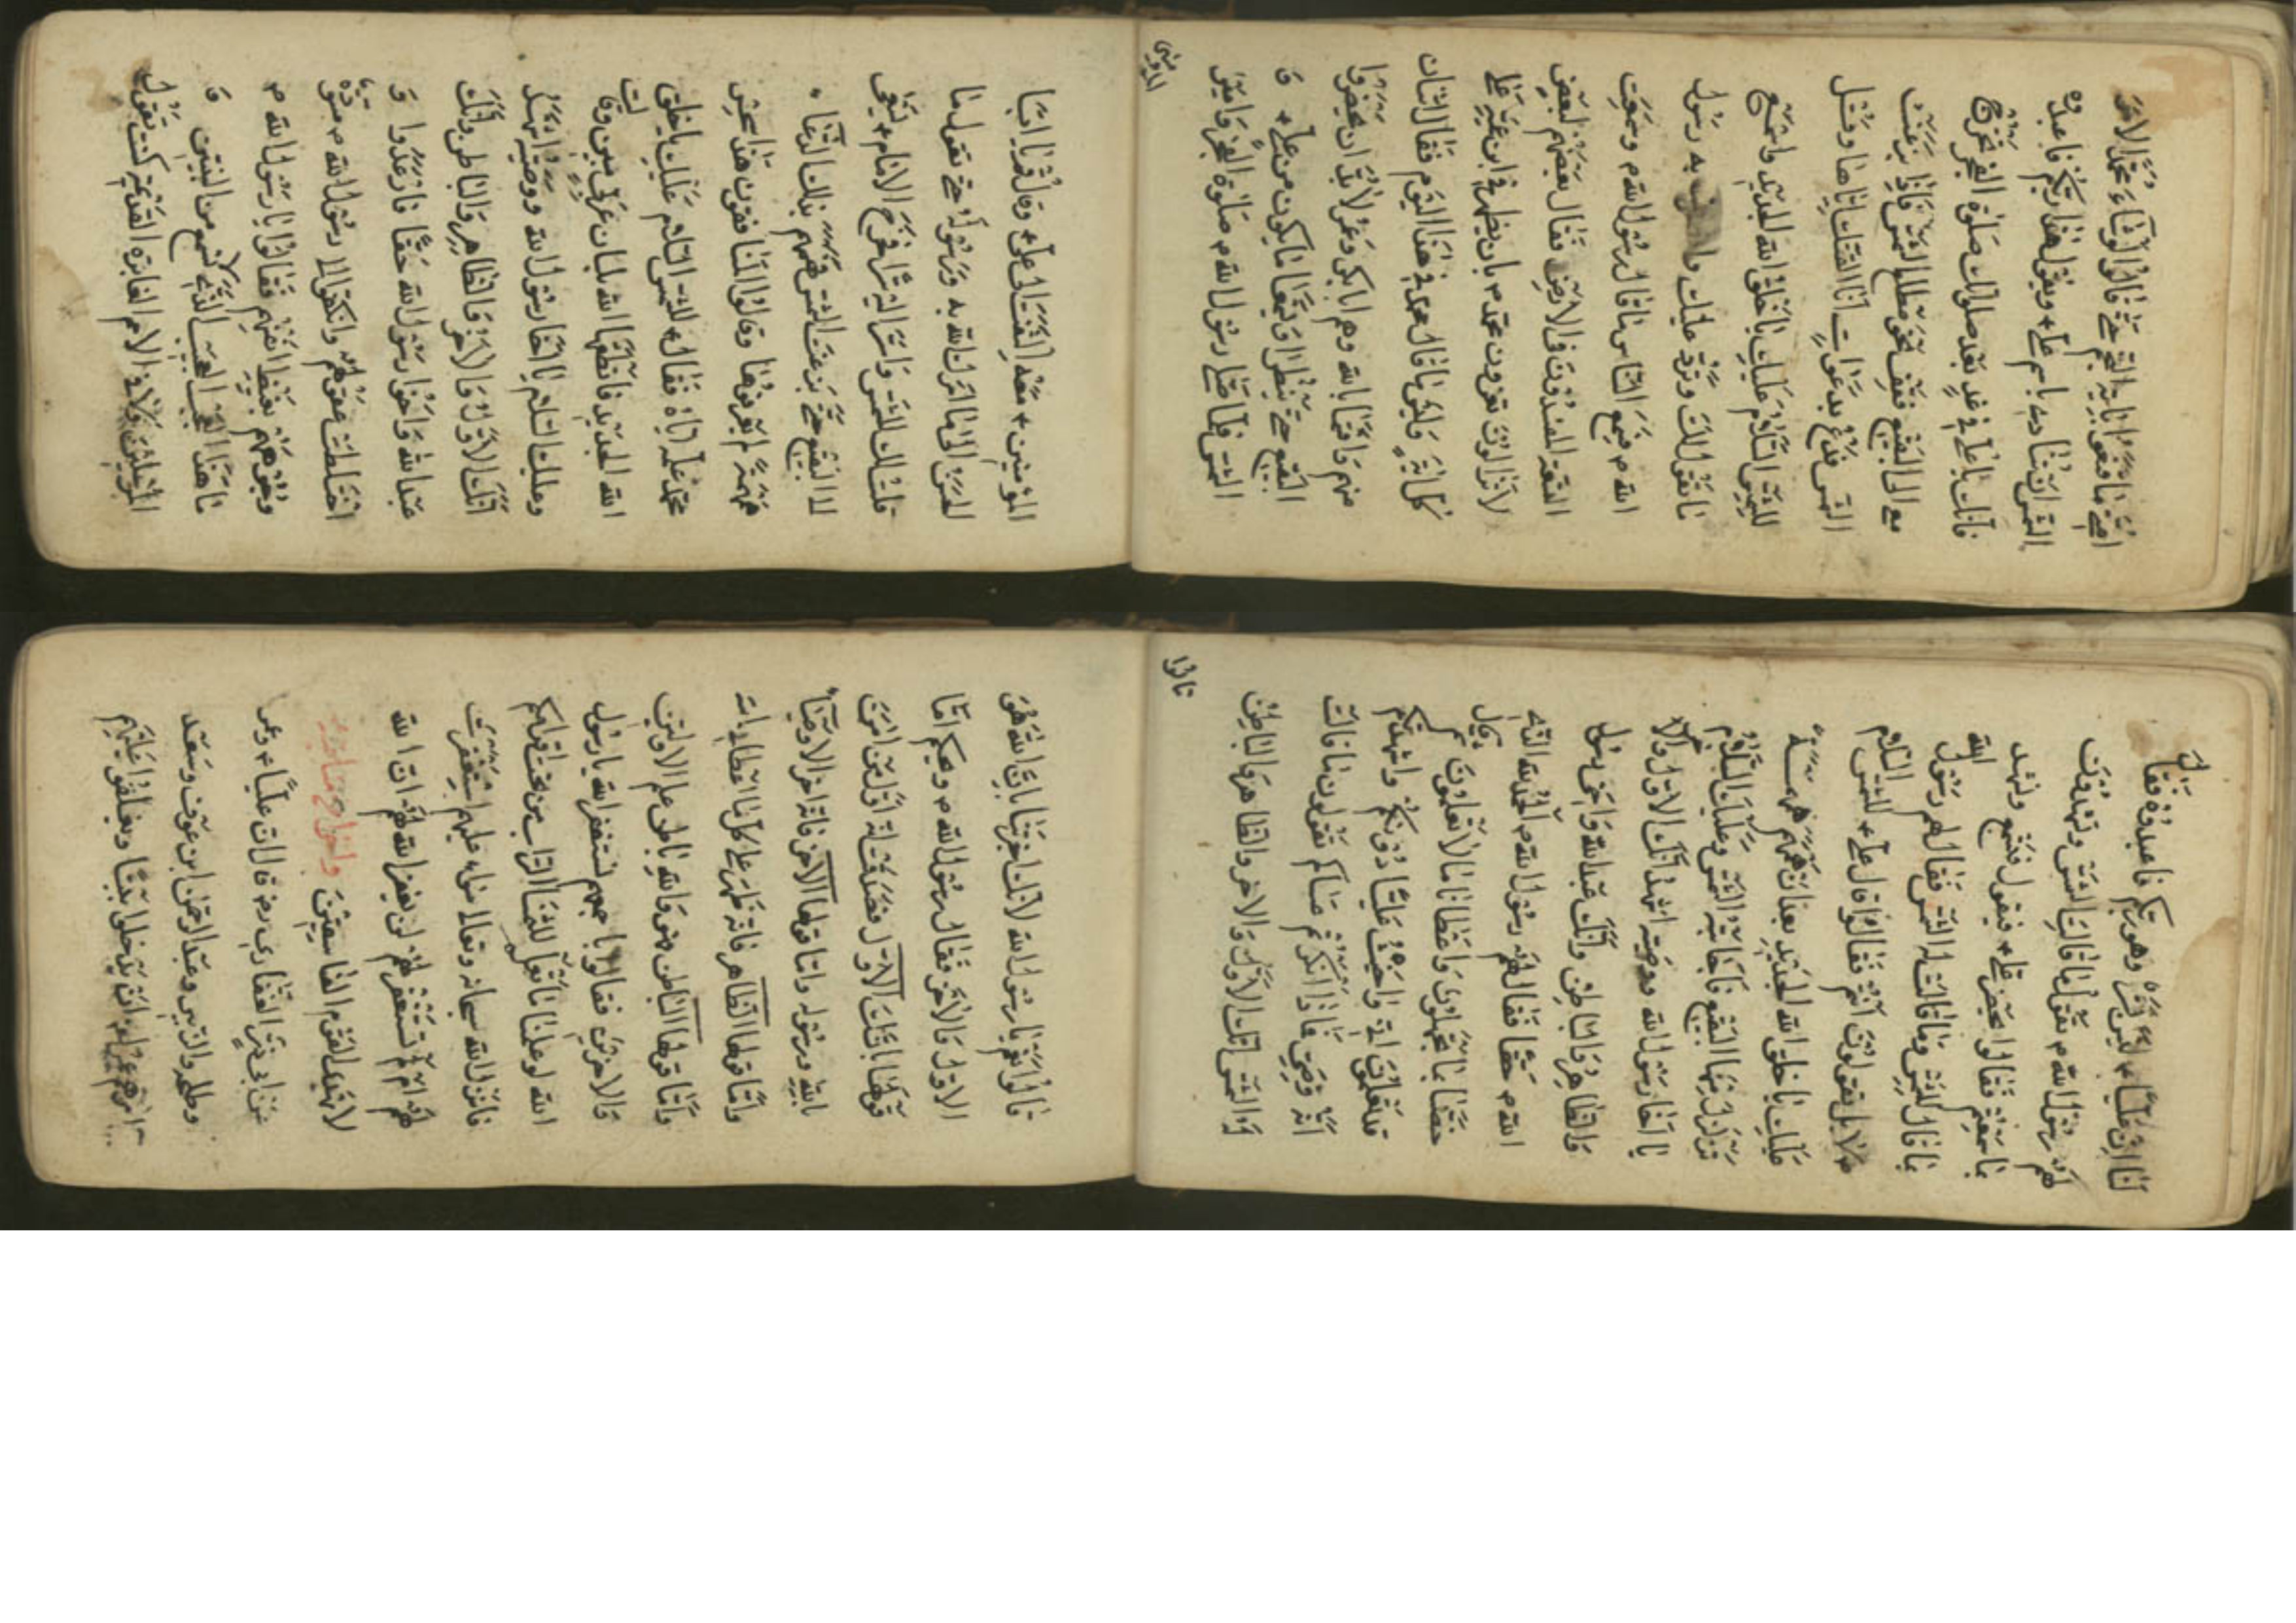 الشمس ان تناديه باسم علي ويقول هذا ربكم فاعبدوه
فانك يا علي في غد بعد صلوتك صلوة الفجر تخرج
مع الى البقيع فقف نحو مطلع الشمس فاذا بزغت
الشمس فادع بدعوات انا القنك اياها وقل
للشمس السلام عليك يا خلق الله الجديد واسمع
ما تقول لك وترد عليك به رسول
الله م فسمع الناس ما قال رسول الله م وسمعت
التسعة المفسدون في الارض فقال بعضهم لبعض
لا تزالون تغرون محمد م بان يظهر في ابن عمه علي
كل اية ما قال محمد في هذا اليوم فقال اثنان
منهم واقسما بالله وهم ابا بكر وعمر لابد ان يحضروا
البقيع حتى ينظرا ويسمعا ما يكون من علي و
الشمس فلما صلى رسول الله م صلوة الفجر وامير
المؤمنين
المؤمنين معه التفت الى علي وقال قم يا ابا
الحسن الى ما امرك الله به ورسوله حتى تقول ما
قلت لك للشمس واسر اليه سرا فخرج الامام يسعى
الى البقيع حتى بزغت الشمس فهمهم بذلك الدعاء
همهمة لم يعرفوها وقالوا المنافقون هذا سحر من
محمد علمه اياه فقال للشمس السلام عليك يا خلق
الله الجديد فانطقها الله بلسان عربي مبين وقالت
وعليك السلام يا اخا رسول الله ووصيه اشهد
انك الاول والاخر والظاهر والباطن وانك
عبد الله واخو رسول الله حقا فارعدوا و
اختلطت عقولهم وانكفوا الى رسول الله م مسوده
وجوههم بغيظ انفسهم فقالوا يا رسول الله م
ما هذا العجب العجيب الذي لم نسمع من النبيين و
المرسلين ولا في الامم الغابره القديمه كنت تقول
لنا ان عليا ليس بشر وهو ربكم فاعبدوه فقال
لهم رسول الله م تقولوا ما قالت الشمس وتشهدون
بما سمعتم فقالوا يحضر علي فيقول فنسمع ونشهد
بما قال للشمس وما قالت له الشمس فقال لهم رسول الله
لا بل تقولون انتم فقالوا قال علي للشمس السلام
عليك يا خلق الله الجديد بعد ان همهم همهمة
تزلزل منها البقيع فاجابته الشمس وعليك السلام
يا اخا رسول الله ووصيه اشهد انك الاول والاخر
والظاهر والباطن وانك عبد الله واخي رسول
الله م حقا فقال لهم رسول الله م الحمد لله الذي
خصنا بما تجهلون واعطانا ما لا تعلمون
قد تعلمون اني واخيت عليا دونكم واشهدتكم
انه وصي فاذا انكرتم عساكم تقولون ما قالت
والشمس انك الاول والاخر والظاهر والباطن
قالوا
قالوا نعم يا رسول الله لانك اخبرتنا بان الله هو
الاول والاخر فقال رسول الله م ويحكم اما
قولها بانك الاول فصدقت انه اول من امن
بالله ورسوله واما قولها الاخر فانه اخر الاوصياء
واما قولها الظاهر فانه ظهر على كل ما اعطاه الله
واما قولها الباطن هو والله باطن علم الاولين
والاخرين فقالوا باجمعهم نستغفر الله يا رسول
الله لو علمنا ما تعلم لساخت التراب من تحت اقدامكم
فانزل الله سبحانه وتعالى عليهم استغفرت
لهم ام لم تستغفر لهم لن يغفر الله لهم ان الله
لا يهدي القوم الفاسقين
عن ابي ذر الغفاري رض قال ان عليا وعمر
وطلحه والزبير وعبد الرحمن ابن عوف وسعد
امرهم عمر ان يدخلوا بيتا ويغلقوا عليهم